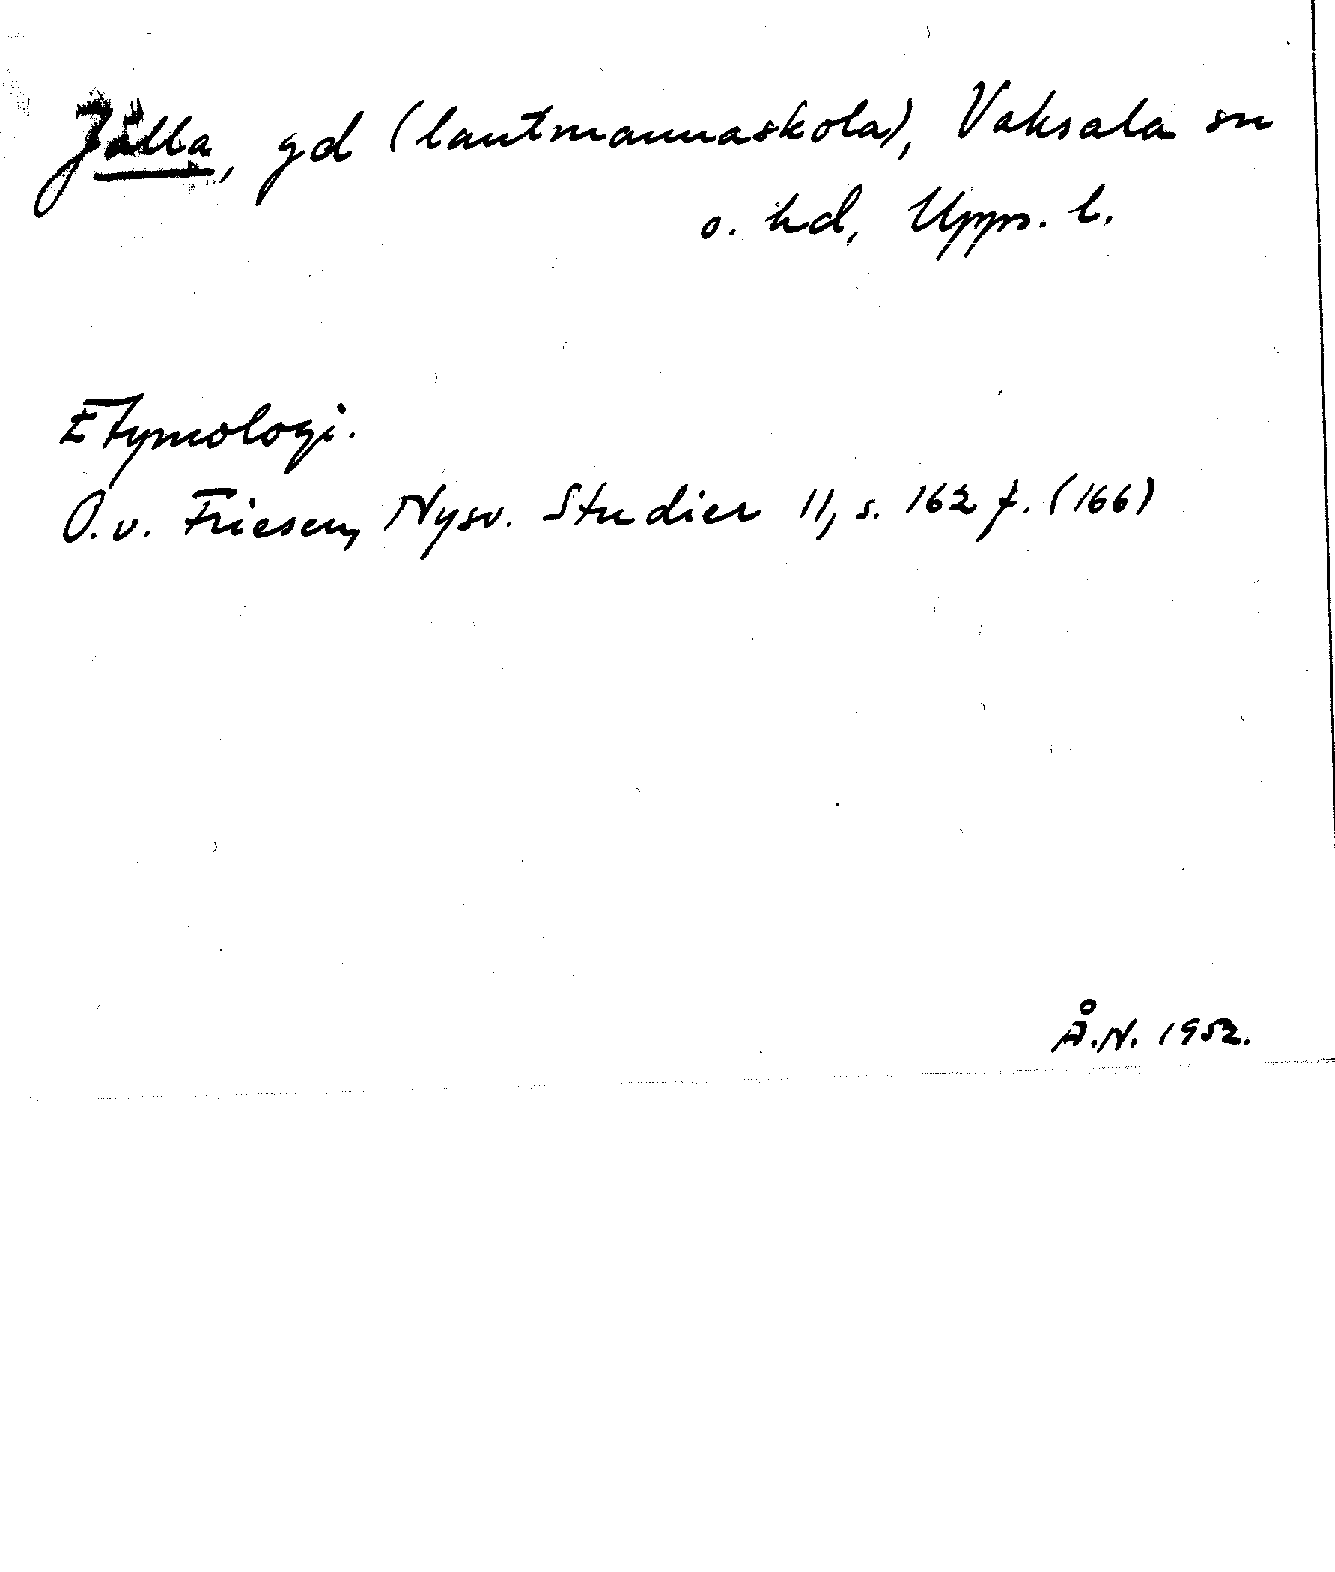 Jälla, gd (lantmannaskola), Vaksala sn
o. hd, Upps. l.
Etymologi.
O. v. Friesen, Nysv. Studier 11, s. 162 f. (166)
Å.N. 1952.